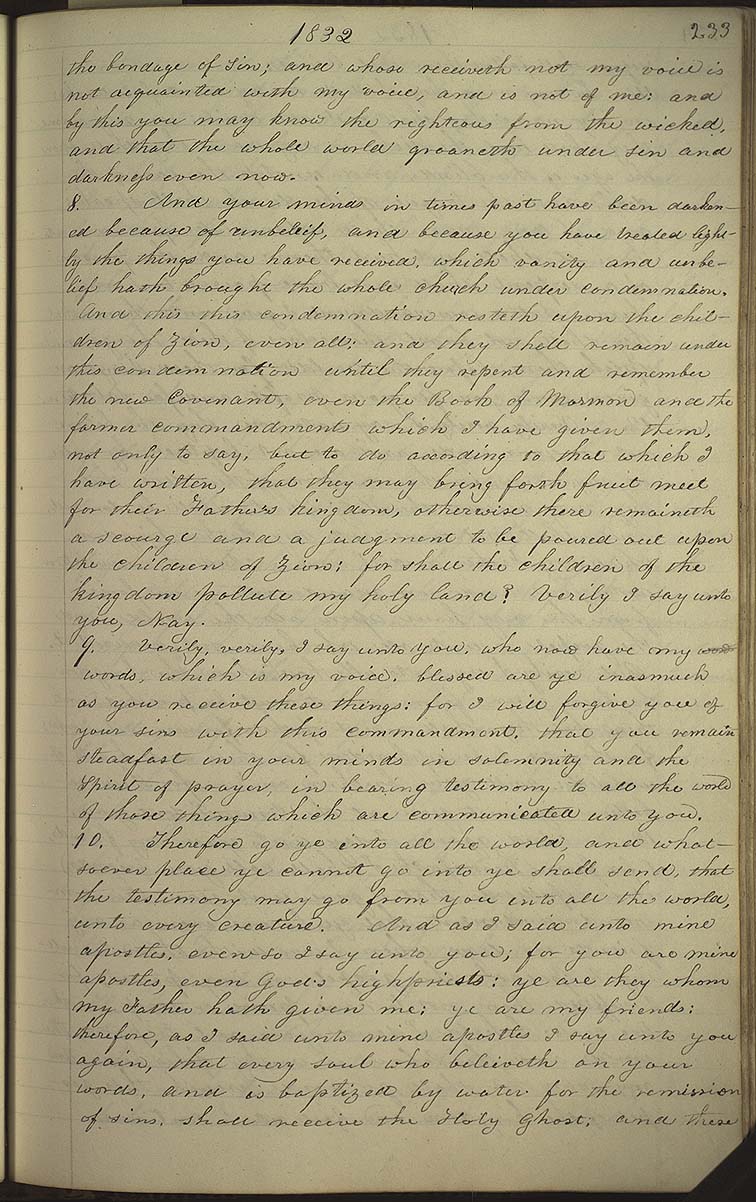 1832
233
the bondage of sin; and whoso receiveth not my voice is
not acquainted with my voice, and is not of me: and
by this you may know the righteous from the wicked,
and that the whole world groaneth under sin and
darkness even now.
8. And your minds in times past have been darken-
ed because of unbeleif, and because you have treated light-
ly the things you have received, which vanity and unbe-
lief hath brought the whole church under condemnation.
And this this condemnation resteth upon the chil-
dren of Zion, even all: and they shall remain under
this condemnation until they repent and remember
the new Covenant, even the Book of Mormon and the
former commandments which I have given them,
not only to say, but to do according to that which I
have written, that they may bring forth fruit meet
for their Father's kingdom, otherwise there remaineth
a scourge and a judgment to be poured out upon
the children of Zion: for shall the children of the
kingdom pollute my holy land? Verily I say unto
you, Nay.
9. Verily, verily, I say unto you, who now have my word
words, which is my voice, blessed are ye inasmuch
as you receive these things: for I will forgive you of
your sins with this commandment, that you remain
steadfast in your minds in solemnity and the
Spirit of prayer, in bearing testimony to all the world
of those things which are communicated unto you.
10. Therefore go ye into all the world, and what-
soever place ye cannot go into ye shall send, that
the testimony may go from you into all the world,
unto every creature. And as I said unto mine
apostles, even so I say unto you; for you are mine
apostles, even God's highpriests: ye are they whom
my Father hath given me: ye are my friends:
therefore, as I said unto mine apostles I say unto you
again, that every soul who beleiveth on your
words, and is baptized by water for the remission
of sins, shall receive the Holy Ghost; and these